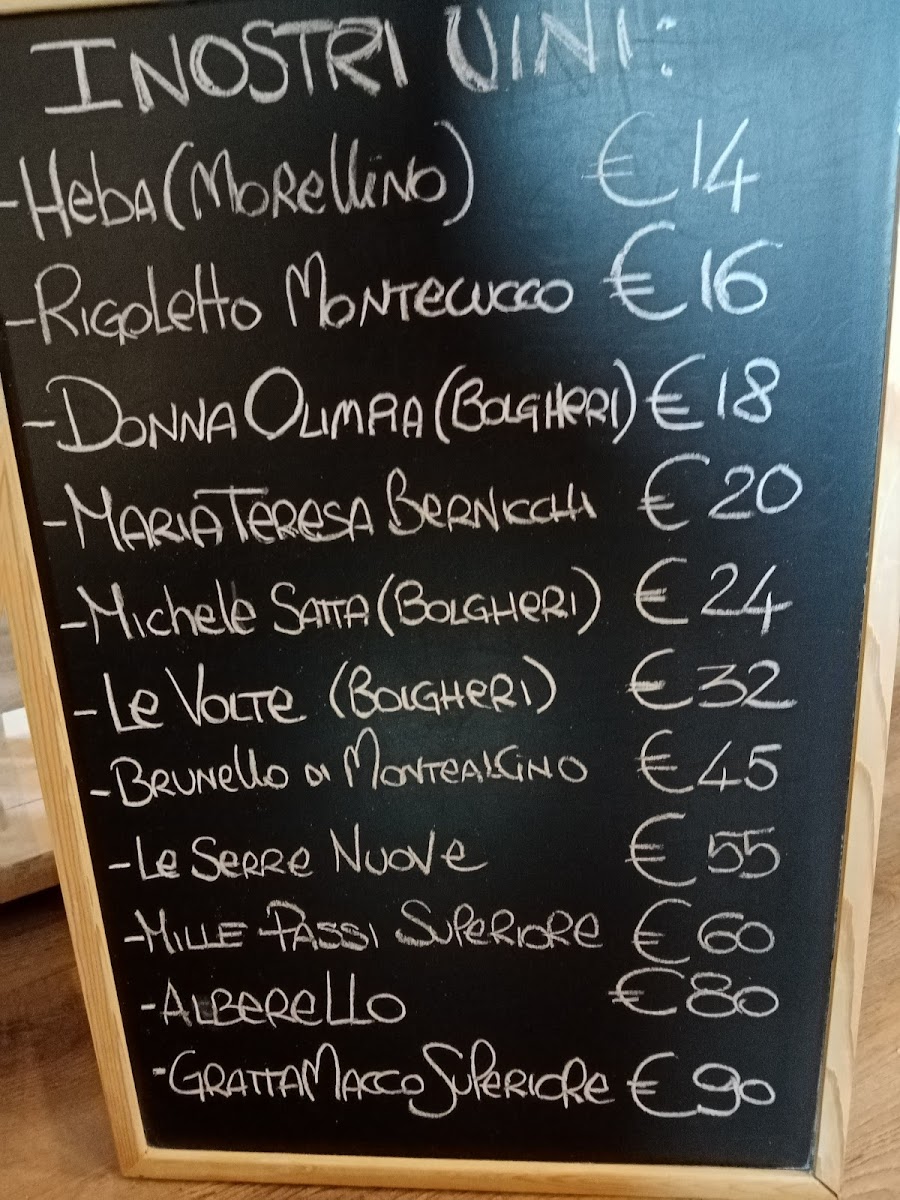 I NOSTRI VINI:
- HEBA (MORELLINO) € 14
- RIGOLETTO MONTECUCCO € 16
- DONNA OLIMPIA (BOLGHERI) € 18
- MARIA TERESA BERNICCHI € 20
- MICHELE SATTA (BOLGHERI) € 24
- LE VOLTE (BOLGHERI) € 32
- BRUNELLO DI MONTEALCINO € 45
- LE SERRE NUOVE € 55
- MILLE PASSI SUPERIORE € 60
- ALBERELLO € 80
- GRATTAMACCO SUPERIORE € 90